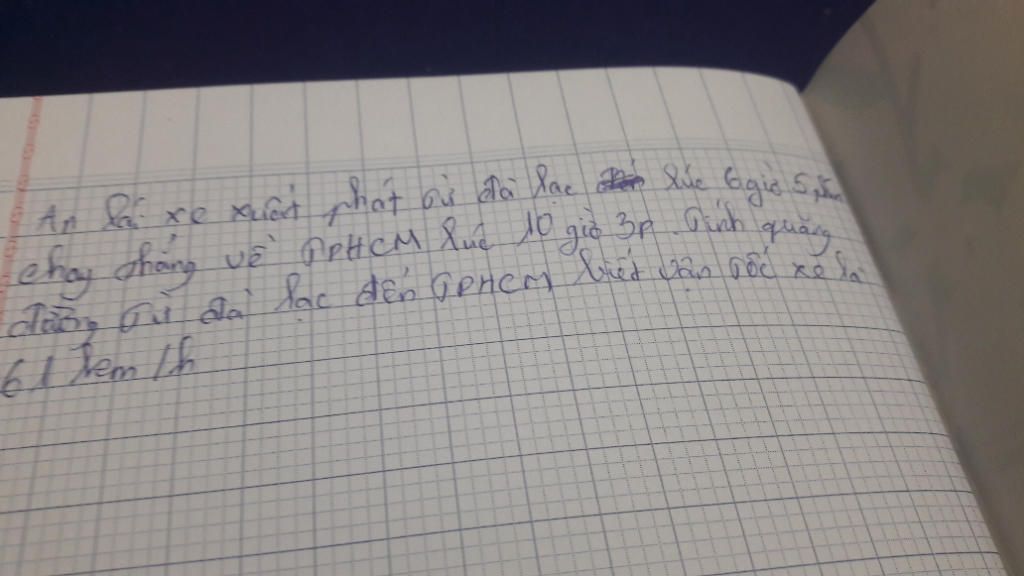 An lái xe xuất phát từ đà lạc lúc 6 giờ 5 phút
chạy thẳng về TPHCM lúc 10 giờ 3p. Tính quãng
đường từ đà lạc đến TPHCM biết vận tốc xe là
61 km/h